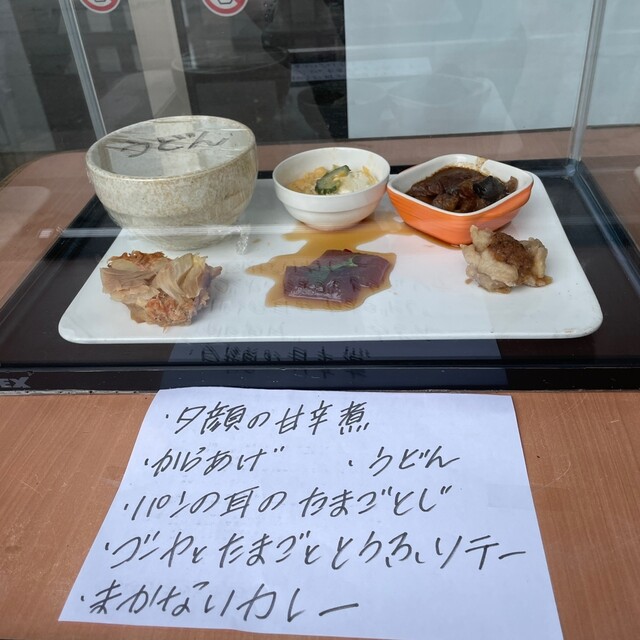 うどん
EX
・夕顔の甘辛煮
・からあげ ・うどん
・パンの耳のたまごとじ
・ゴーヤとたまごととうふソテー
・まかないカレー